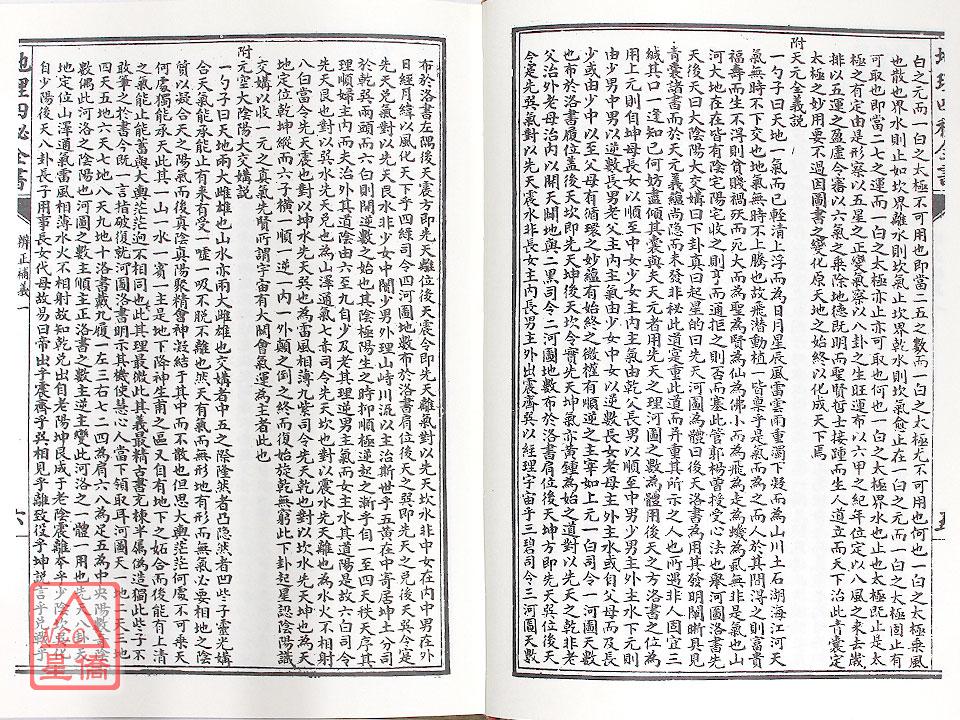 白之元而一白之太極不可用也即當二五之數而一白之太極尤不可用也何也一白之太極乘風
也散也界水則止如坎界離水則坎氣止坎界乾水則坎氣愈止在一白之元而一白之太極固止有
可取也即當二七之運而一白之太極亦止亦可取也何也一白之太極界水也止也太極既止是太
極之有定由是形察以五星之正變氣察以八卦之生旺運布以六甲之紀年位定以八風之來去歲
排以五運之盈虛令書以六氣之乘除地德既明而聖賢哲士接踵而生人道立而天下治此青囊定
太極之妙用要不過因圖書之變化原天地之始終以化成天下焉
附
天元全義說
一勺子曰天地一氣而已輕清上浮而為日月星辰風雷雲雨重濁下凝而為山川土石湖海江河天
氣無時不下交也地氣無時不上騰也故飛潛動植一皆稟乎是氣而為之而人於其間得之則富貴
福壽而生不得則貧賤禍殀而死大而為聖為賢為仙為佛小而為飛為走為蟯為氣無非是氣也山
河大地在在皆有陰宅陽宅收之則亨而通拒之則否而塞此管郭楊曾授受心法也舉河圖洛書先
天後天曰大陰陽大交媾曰下卦真曰起星的曰先天河圖為體曰後天洛書為用發明闡晰具見
青囊諸書而於天元義蘊尚隱而未發非秘此道寔重此道而并重其所示之人也所遇非人固宜三
緘其口一逢知已何妨罄傾其囊與夫天元者用先天之理河圖之數為體用後天之方洛書之位為
用上元則自坤母長女以順至中女少女主內主氣由乾父長男以順至中男少男主外主水下元則
由少男中男以逆數長男老父主內主氣由少女中女以逆數長女老母主外主水或自父母而及長
少或由少中以至父母有循環之妙蘊有始終之微權有順逆之主宰如上元一白司令一河圖天數
也布於洛書履位蓋後天坎即先天坤後天坎令實先天坤氣亦黃鍾為始之道對以先天之乾非老
父治外老母治內以開天闢地與二黑司令二河圖地數布於洛書肩位後天坤方即先天巽位後天
令寔先巽氣對以先天震水非長女主內長男主外出震齊巽以經理宇宙乎三碧司令三河圖天數
布於洛書左隅後天震方即先天離位後天震令即先天離氣對以先天坎水非中女在內中男在外
日經月緯以風化天下乎四綠司令四河圖地數布於洛書肩位後天之巽即先天之兌後天巽令寔
先天兌氣對以先天艮水非少女中閫少男外理山峙川流以主治斯世乎五黃在中寄居坤土分司
於乾巽兩頭而六白則開逆數之始也其陰極陽生之時抑順極逆起之漸乎自一至四天秩天序其
理順婦主內而夫治外其道陰由六至九自少及老其理逆男主氣而女主水其道陽是故六白司令
先天艮也對以兌水先天兌也為山澤通氣七赤司令先天坎也對以離水先天離也為水火不相射
八白當令先天震也對以巽水先天巽也為雷風相薄九紫司令先天乾也對以坤水先天坤也為天
地定位乾坤縱而六子橫一順一逆一內一外顛之倒之終而復始旋乾無窮此下卦起星認陰陽識
交媾以收一元之真氣先賢所謂宇宙有大關會氣運為主者此也
附
元空大陰陽大交媾說
一勺子曰天地兩大雌雄也山水亦兩大雌雄也交媾者中五之際隆然者凸隱然者凹些子靈光媾
合天氣能承天能止有來有受一噓一吸不脫不離也然天有氣而無形地有形而無氣必要相地之陰
質以凝合天之陽氣而後真陰真陽聚精會神凝結于其中而不散也但思大輿茫茫何處不可乘天
何處獨能承天止其一山一水一賓一主是地下降神生甫之區又自有地下之妬合而後能有上清
之氣能止能蓄與大輿茫茫迥不相同也此其理最微此其義最精古書充棟半屬偽造獨此些子不
敢筆之於書今既一言指破復就河圖洛書明示其機使慧心人當下領取耳河圖天一地二天三地
四天五地六天七地八天九地十洛書戴九履一左三右七二四為肩六八為足五為中央陽數
數偶此河洛之陰陽也河圖之數主順主正洛書之數主逆主變此河洛之一體一用也先天八卦天
地定位山澤通氣雷風相薄水火不相射故知乾兌出自老陽坤艮成于老陰震離本乎少陰坎巽化
自少陽後天八卦長子用事長女代母故易曰帝出乎震齊乎巽相見乎離致役乎坤說言乎兌戰乎
地理四秘全書
辨正補義
六
五
星僑